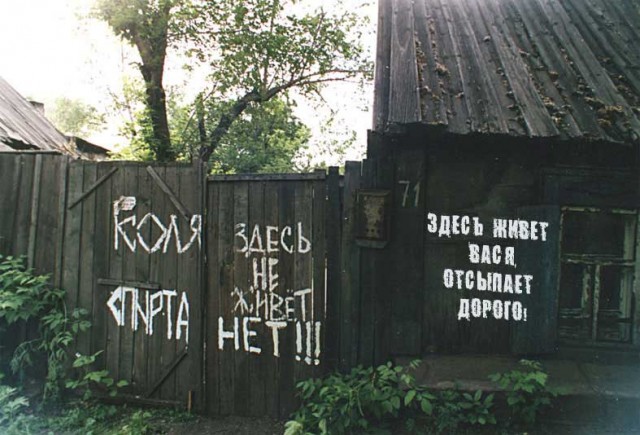 КОЛЯ
ЗДЕСЬ
НЕ
ЖИВЁТ
СПИРТА
НЕТ!!!
71
ЗДЕСЪ ЖИВЕТ
ВАСЯ,
ОТСЫПАЕТ
ДОРОГО!